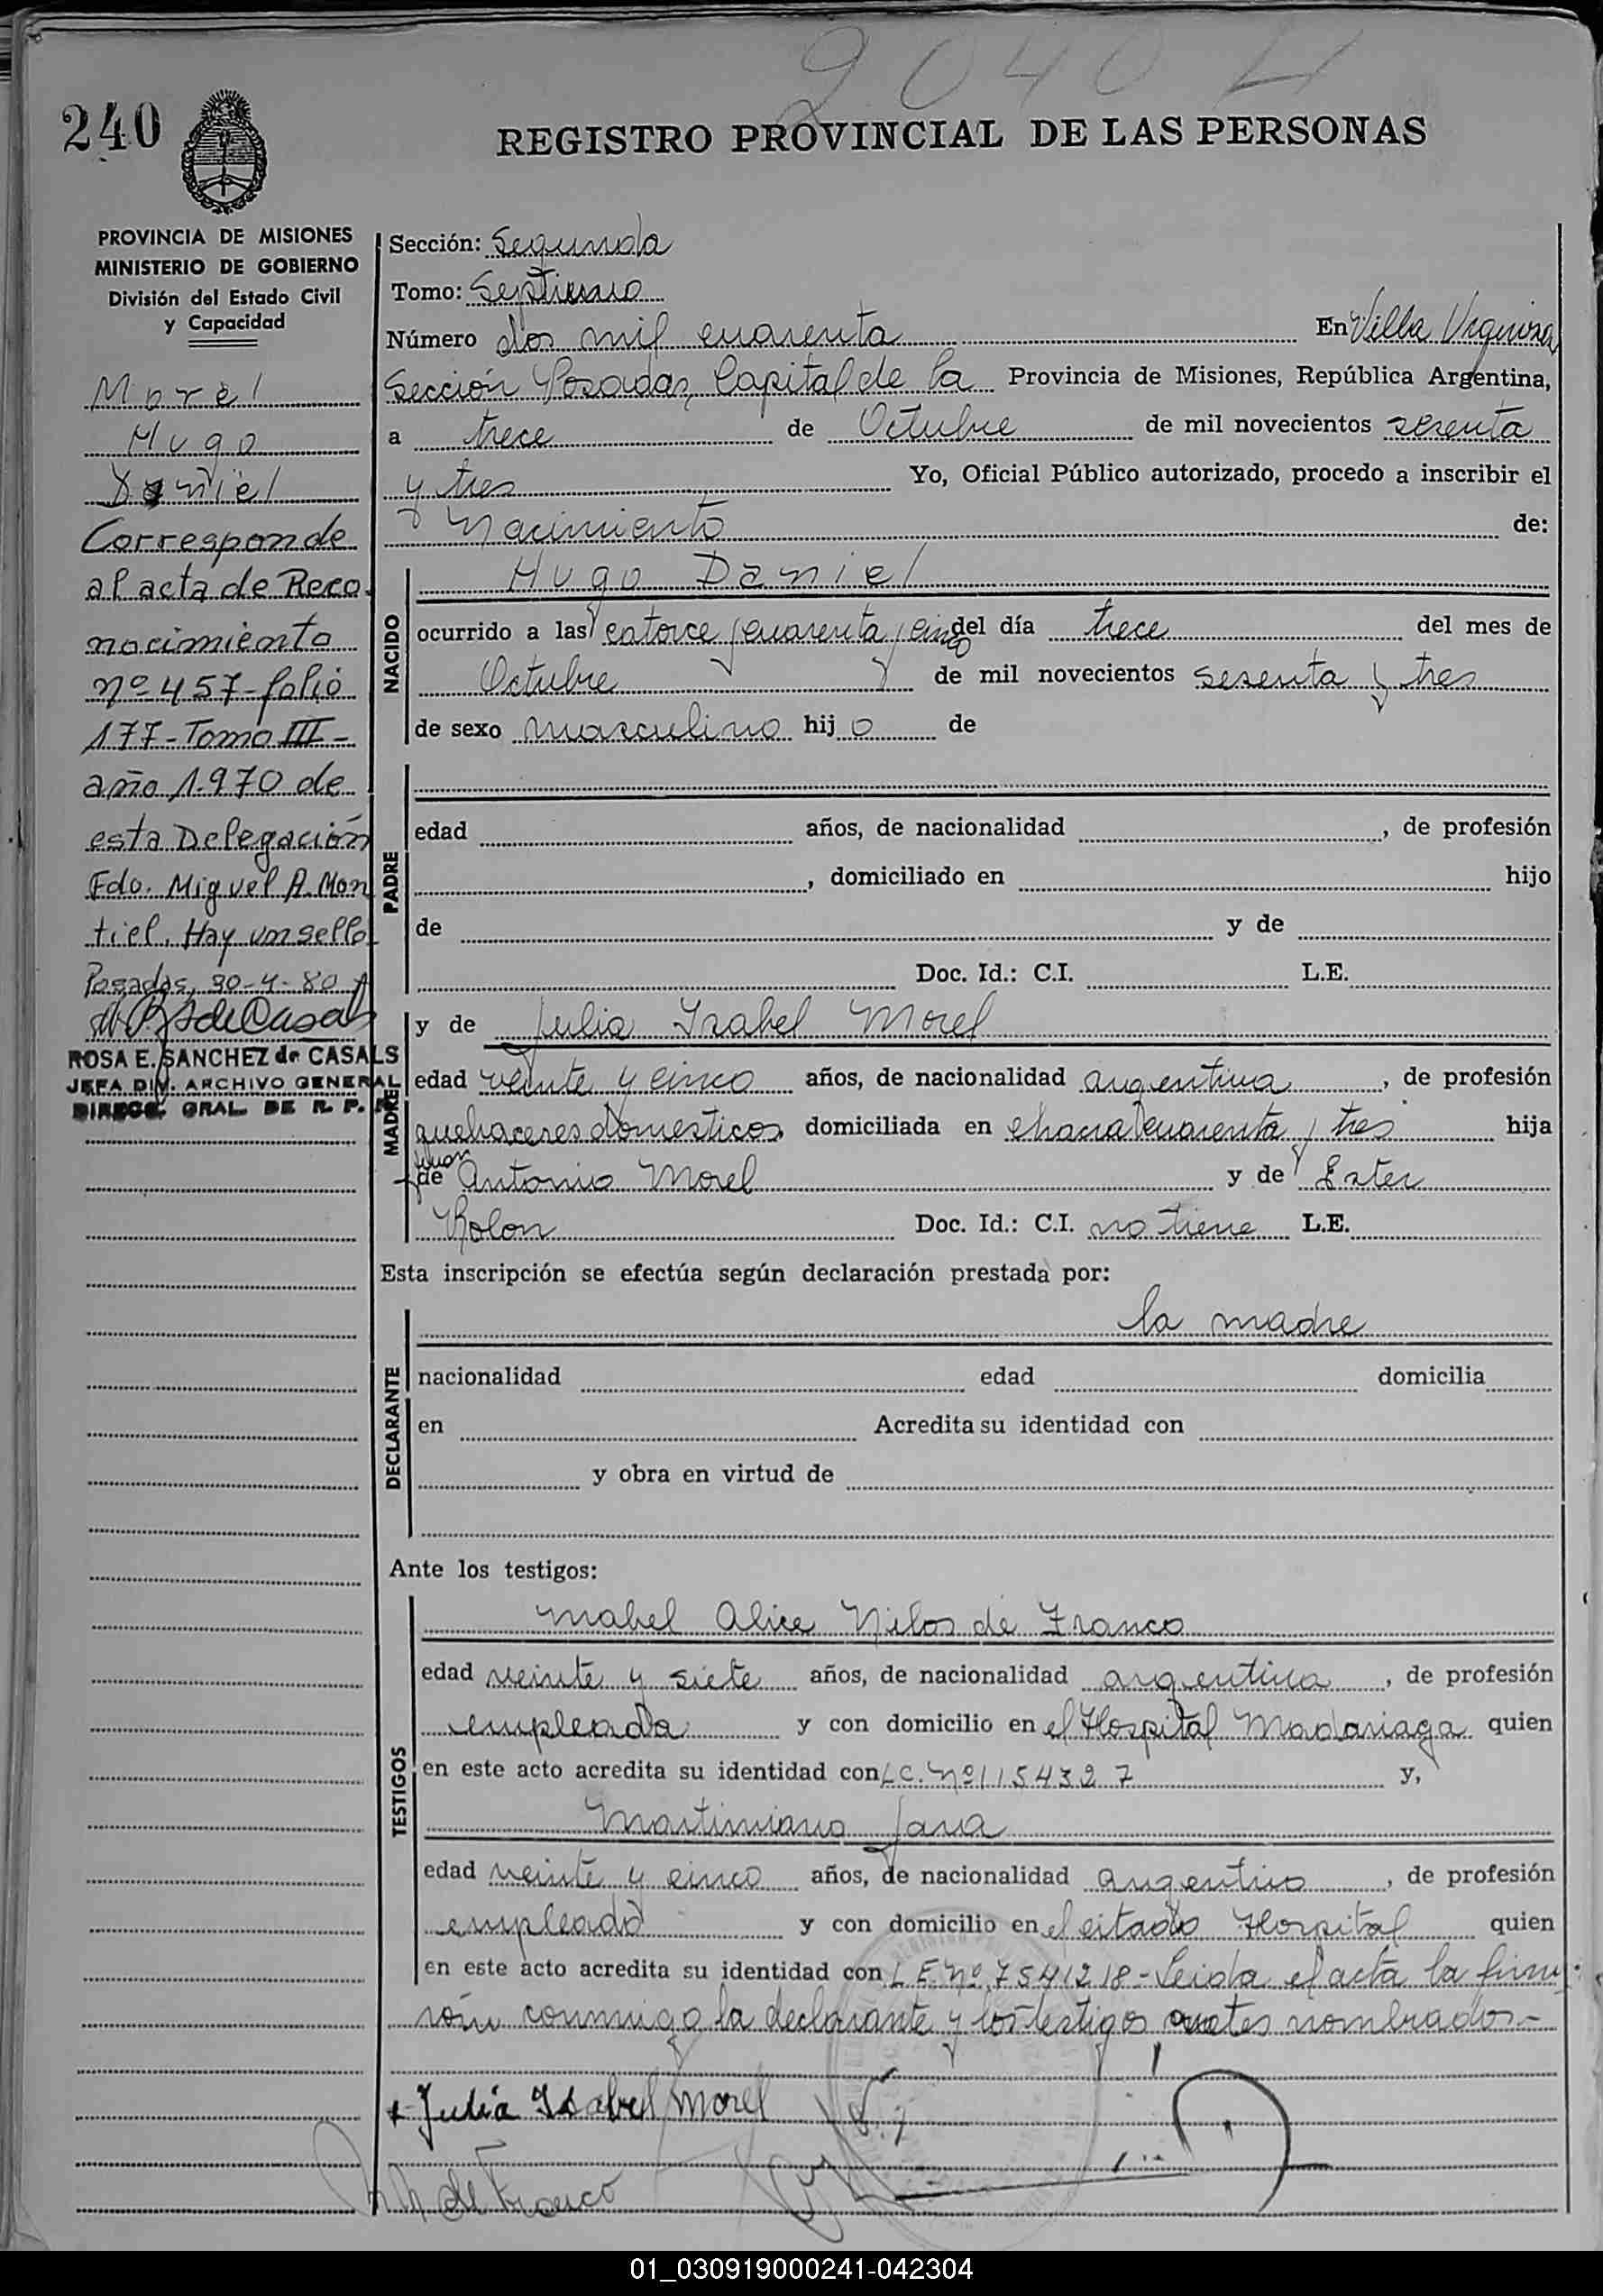 2040 L
240
REGISTRO PROVINCIAL DE LAS PERSONAS
PROVINCIA DE MISIONES
MINISTERIO DE GOBIERNO
División del Estado Civil
y Capacidad
Morel
Hugo
Daniel
Corresponde
al acta de Reco
nocimiento
nº 457-folio
177-Tomo III-
año 1.970 de
esta Delegación
Fdo. Miguel A. Mon
tiel. Hay un sello
Posadas, 30-4-80
ROSA E. SANCHEZ de CASALS
JEFA DIV. ARCHIVO GENERAL
DIRECC. GRAL. DE R. P. P.
Sección: Segunda
Tomo: Septimo
Número dos mil cuarenta En Villa Urquiza
Sección Posadas, Capital de la Provincia de Misiones, República Argentina,
a trece de Octubre de mil novecientos sesenta
y tres Yo, Oficial Público autorizado, procedo a inscribir el
Nacimiento de:
NACIDO
Hugo Daniel
ocurrido a las catorce y cuarenta y cinco del día trece del mes de
Octubre de mil novecientos sesenta y tres
de sexo masculino hijo de
PADRE
edad años, de nacionalidad , de profesión
, domiciliado en hijo
de y de
Doc. Id.: C.I. L.E.
MADRE
y de Julia Isabel Morel
edad veinte y cinco años, de nacionalidad argentina, de profesión
quehaceres domesticos, domiciliada en chacra cuarenta y tres hija
de Juan Antonio Morel y de Ester
Rolon Doc. Id.: C.I. no tiene L.E.
Esta inscripción se efectúa según declaración prestada por:
DECLARANTE
la madre
nacionalidad edad domicilia
en Acredita su identidad con
y obra en virtud de
Ante los testigos:
TESTIGOS
Mabel Alice de Franco
edad veinte y siete años, de nacionalidad argentina, de profesión
empleada y con domicilio en el Hospital Madariaga quien
en este acto acredita su identidad con L.C. Nº 1154327 y,
Martimiano Jara
edad veinte y cinco años, de nacionalidad argentino, de profesión
empleado y con domicilio en el citado Hospital quien
en este acto acredita su identidad con L.E. Nº 7541218-Leida el acta la firma
rón conmigo la declarante y los testigos antes nombrados.-
Julia Isabel Morel
de Franco
01_030919000241-042304